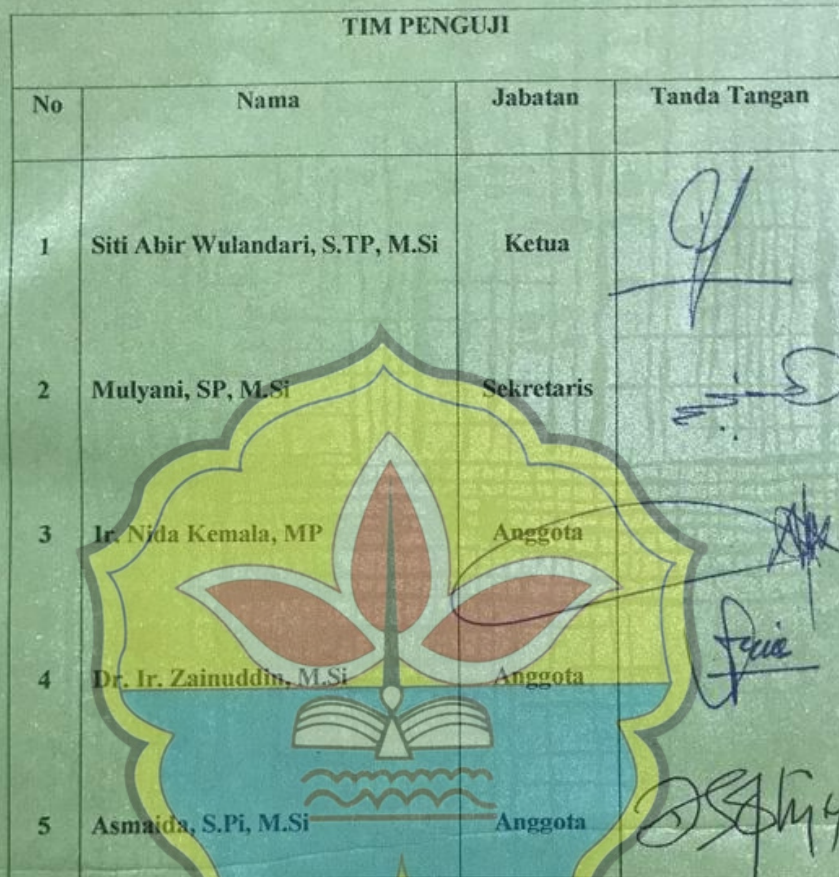 TIM PENGUJI
No Nama Jabatan Tanda Tangan
1 Siti Abir Wulandari, S.TP, M.Si Ketua
2 Mulyani, SP, M.Si Sekretaris
3 Ir. Nida Kemala, MP Anggota
4 Dr. Ir. Zainuddin, M.Si Anggota
5 Asmaida, S.Pi, M.Si Anggota